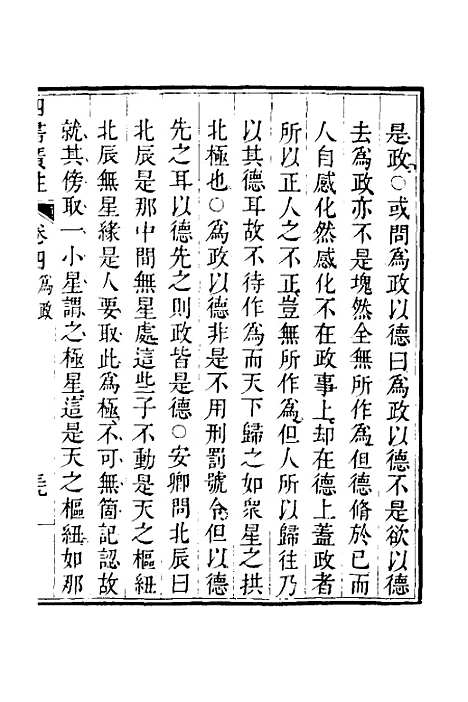 是政○或問爲政以德曰爲政以德不是欲以德
去爲政亦不是塊然全無所作爲但德脩於已而
人自感化然感化不在政事上却在德上蓋政者
所以正人之不正豈無所作爲但人所以歸往乃
以其德耳故不待作爲而天下歸之如衆星之拱
北極也○爲政以德非是不用刑罰號令但以德
先之耳以德先之則政皆是德○安卿問北辰曰
北辰是那中間無星處這些子不動是天之樞紐
北辰無星緣是人要取此爲極不可無箇記認故
就其傍取一小星謂之極星這是天之樞紐如那
卷四 爲政